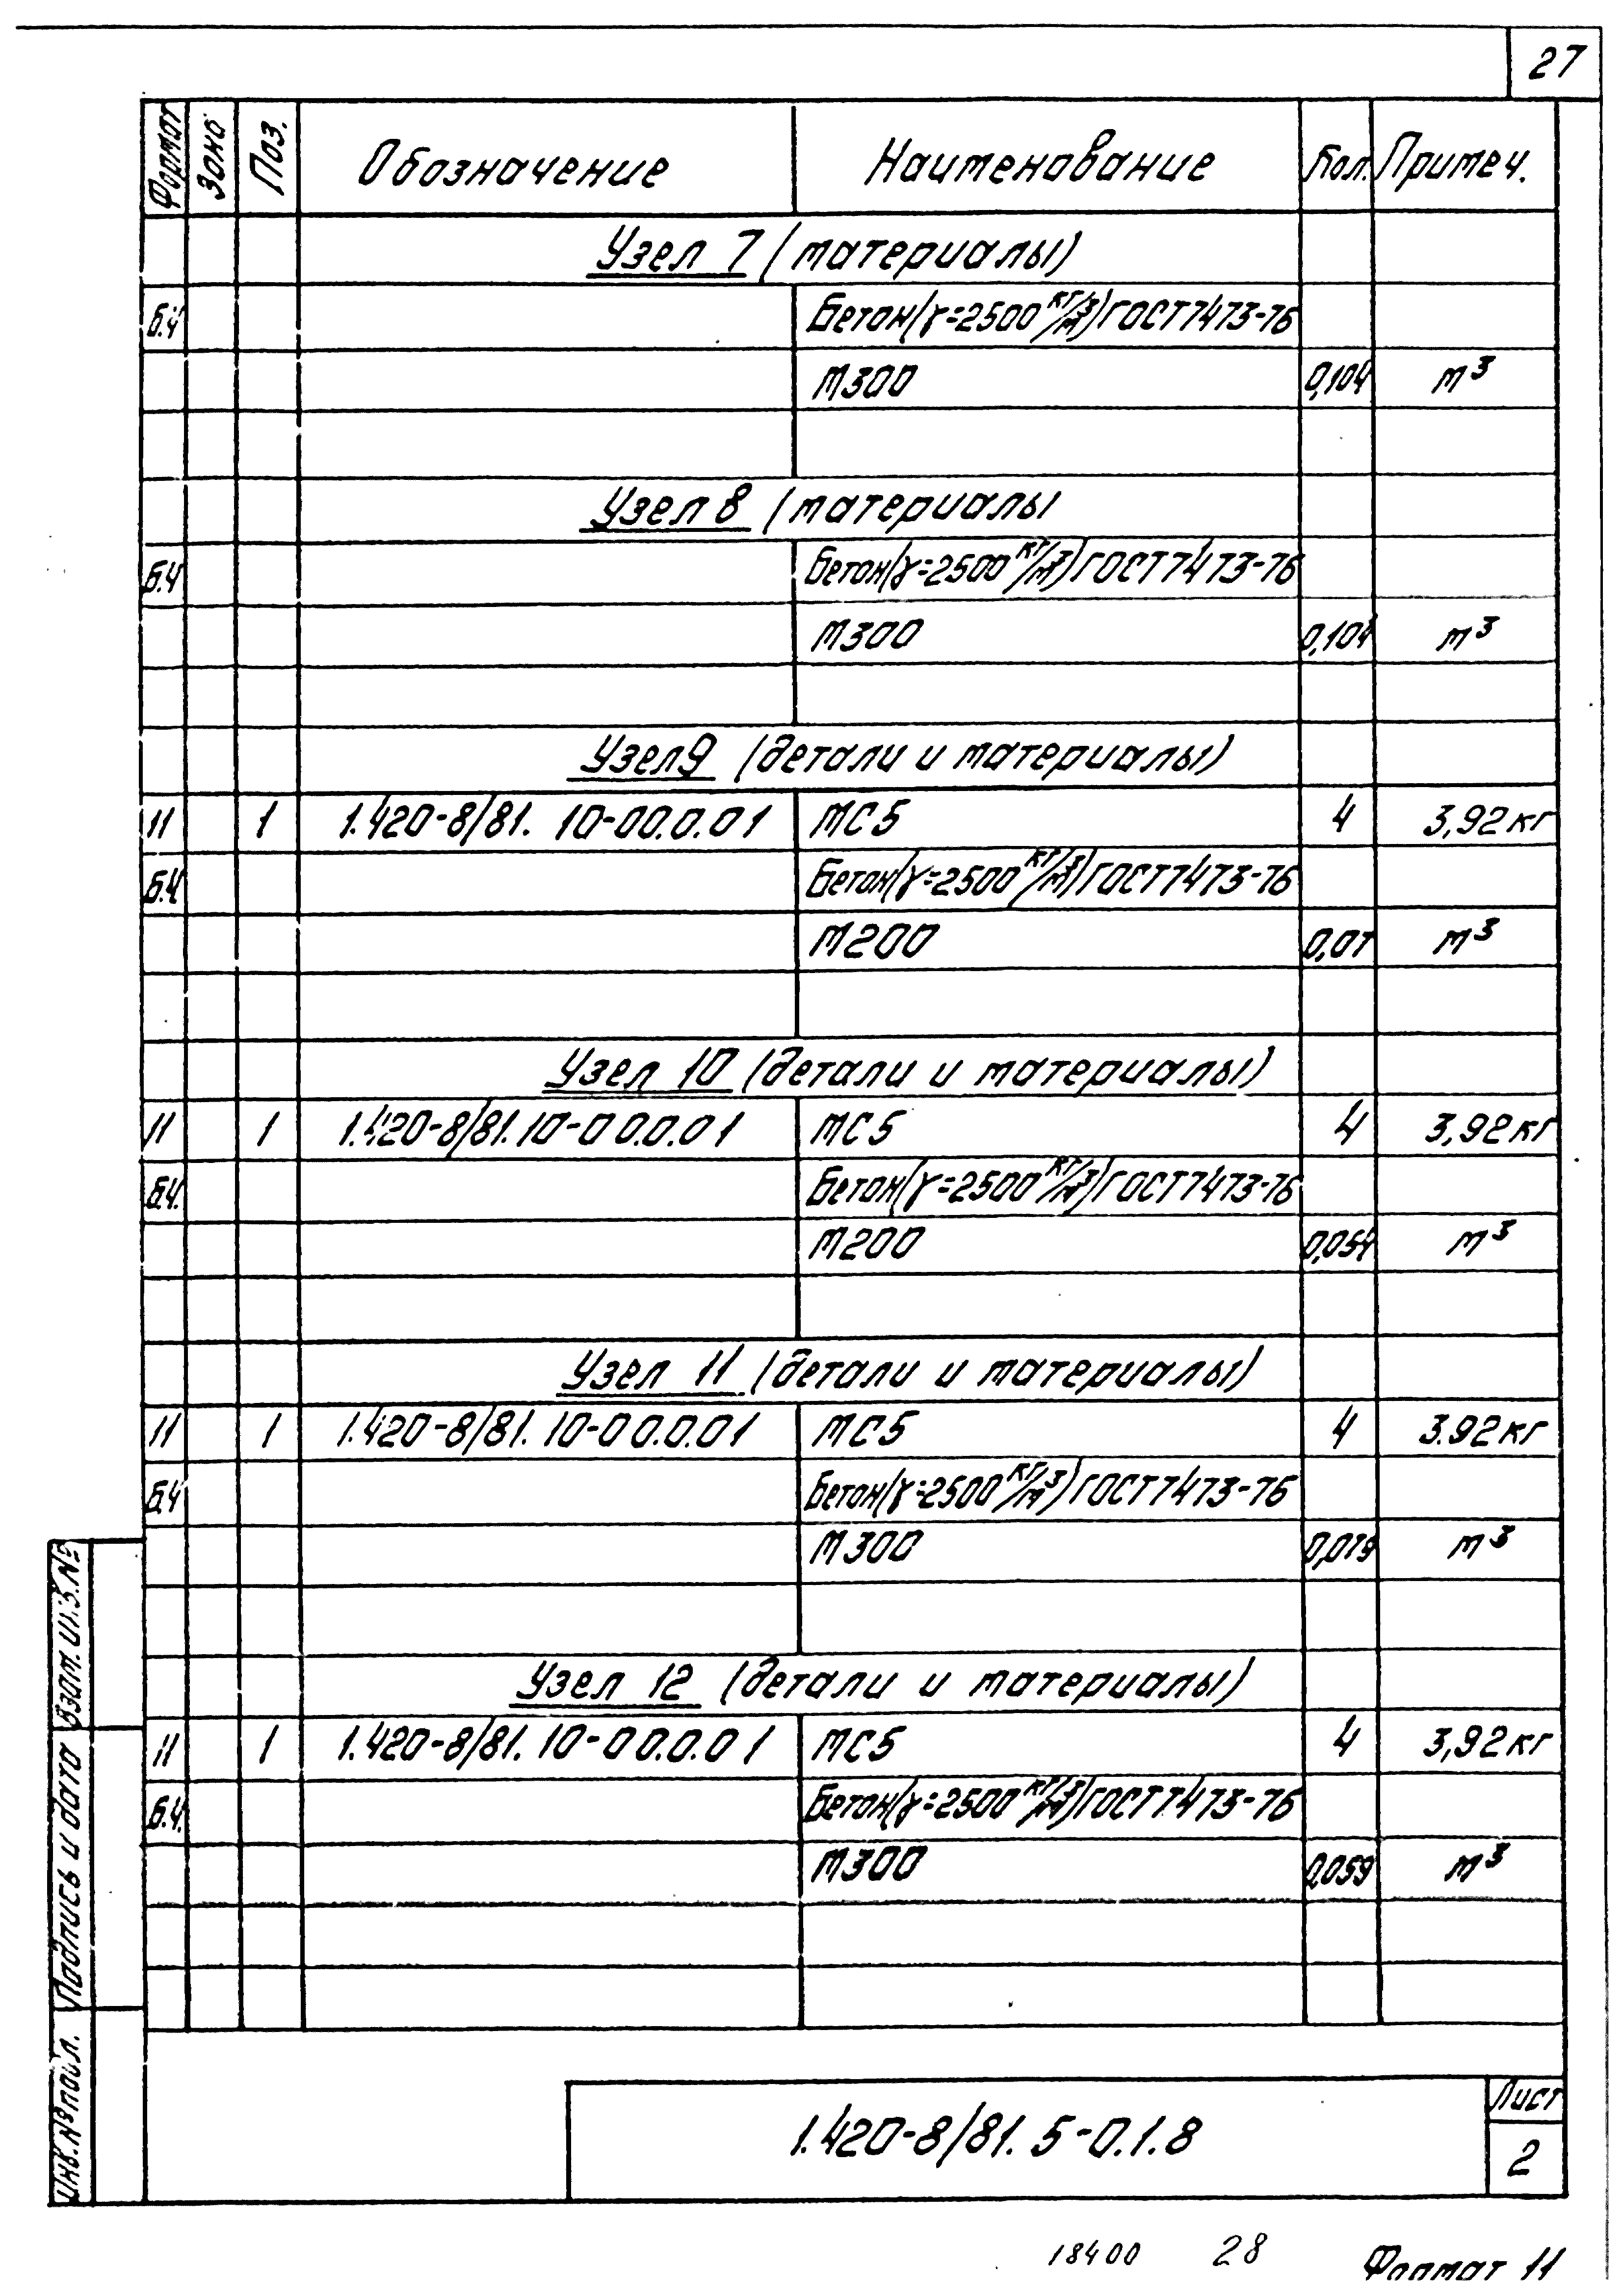 27
Формат Зона Поз. Обозначение Наименование Кол. Примеч.
Узел 7 (материалы)
Б.Ч Бетон(γ=2500 кг/м³)ГОСТ7473-76
М300 0,104 м³
Узел 8 (материалы
Б.Ч Бетон(γ=2500 кг/м³)ГОСТ7473-76
М300 0,104 м³
Узел 9 (детали и материалы)
11 1 1.420-8/81. 10-00.0.01 МС5 4 3,92кг
Б.Ч Бетон(γ=2500 кг/м³)ГОСТ7473-76
М200 0,07 м³
Узел 10 (детали и материалы)
11 1 1.420-8/81.10-00.0.01 МС5 4 3,92кг
Б.Ч. Бетон(γ=2500 кг/м³)ГОСТ7473-76
М200 0,054 м³
Узел 11 (детали и материалы)
11 1 1.420-8/81. 10-00.0.01 МС5 4 3.92кг
Б.Ч Бетон(γ=2500 кг/м³)ГОСТ7473-76
М300 0,079 м³
Узел 12 (детали и материалы)
11 1 1.420-8/81. 10-00.0.01 МС5 4 3,92кг
Б.Ч. Бетон(γ=2500 кг/м³)ГОСТ7473-76
М300 0,059 м³
Взам. инв.№
Подпись и дата
Инв.№ подл.
1.420-8/81. 5-0.1.8
Лист
2
18400 28 Формат 11